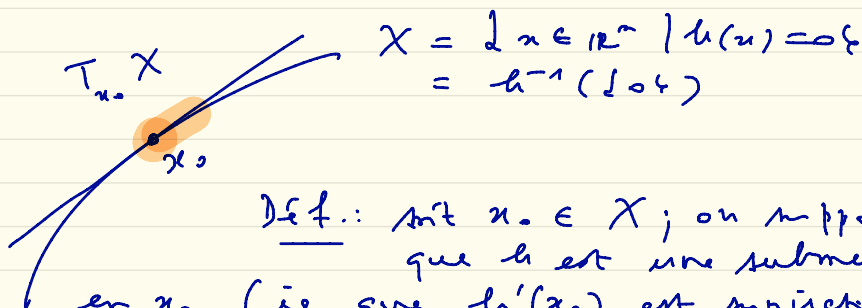 T_{x_0} X
X = { x ∈ ℝⁿ | h(x) = 0 }
= h⁻¹({0})
x_0
Déf.: soit x_0 ∈ X ; on supp
que h est une subme
en x_0 (ie que h'(x_0) est surject